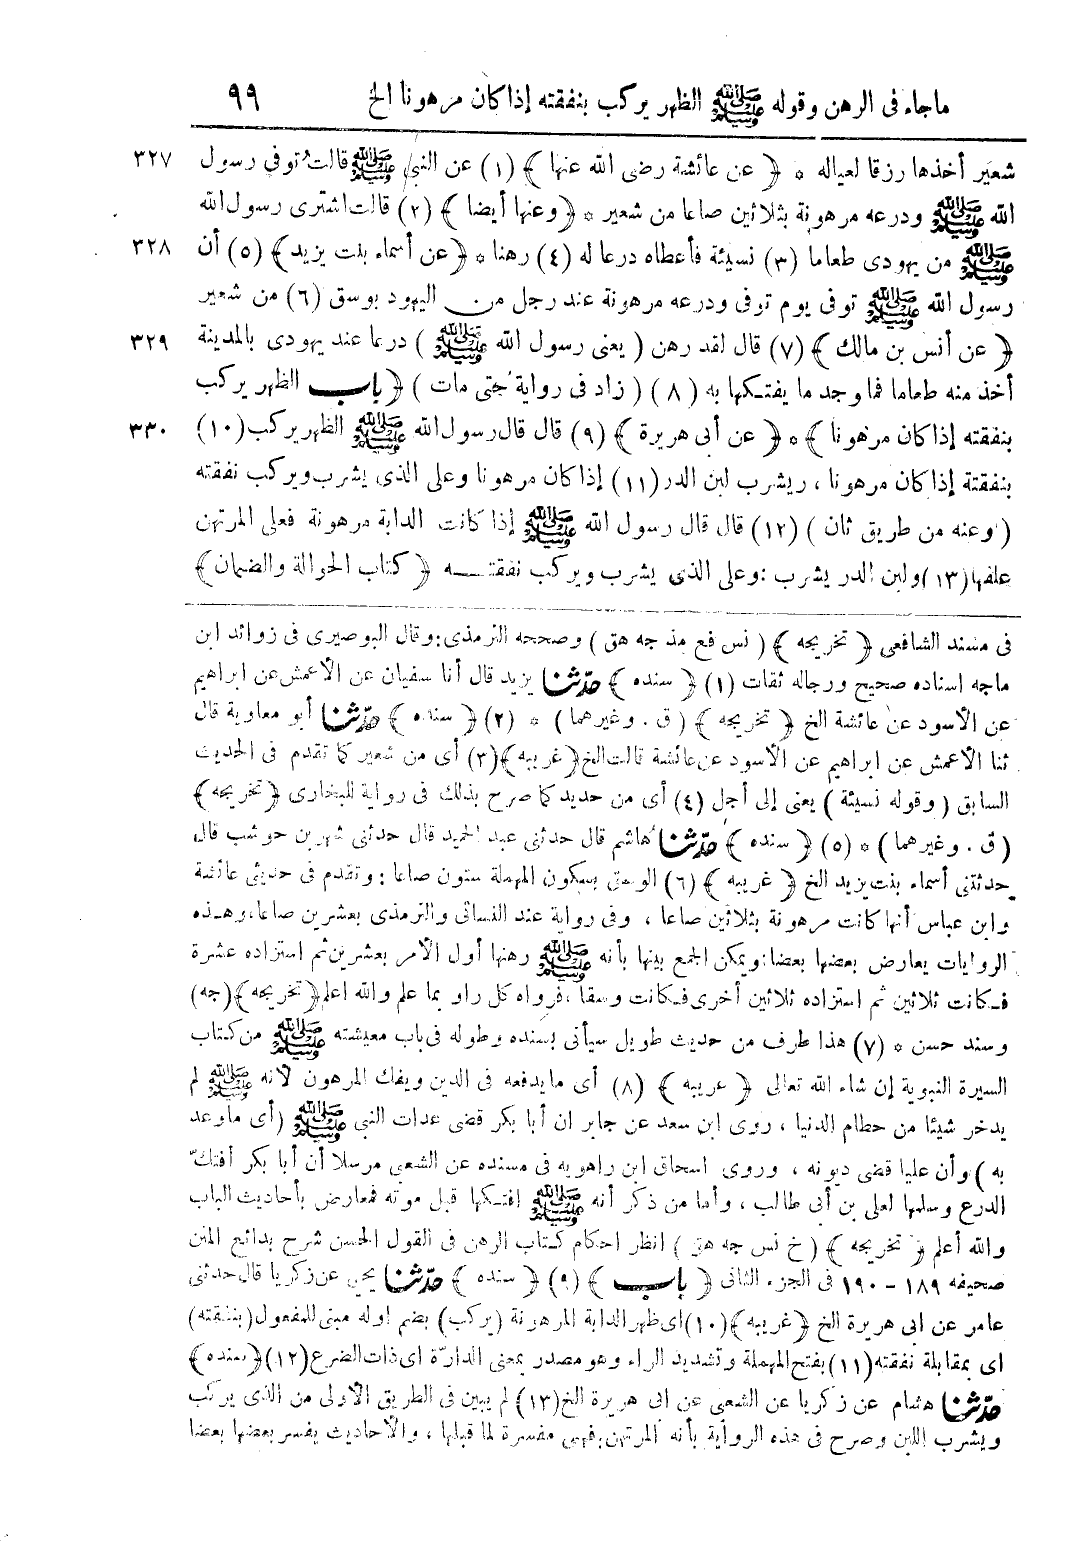 ماجاء فى الرهن وقوله ﷺ الظهر يركب بنفقته إذا كان مرهونا الخ ٩٩
شعير أخذها رزقا لعياله * ﴿ عن عائشة رضى الله عنها ﴾ (١) عن النبى ﷺ قالت توفى رسول ٣٢٧
الله ﷺ ودرعه مرهونة بثلاثين صاعا من شعير * ﴿وعنها أيضا ﴾ (٢) قالت اشترى رسول الله
ﷺ من يهودى طعاما (٣) نسيئة فأعطاه درعا له (٤) رهنا * ﴿عن أسماء بنت يزيد﴾ (٥) أن ٣٢٨
رسول الله ﷺ توفى يوم توفى ودرعه مرهونة عند رجل من اليهود بوسق (٦) من شعير
﴿ عن أنس بن مالك ﴾ (٧) قال لقد رهن ( يعنى رسول الله ﷺ ) درعا عند يهودى بالمدينة ٣٢٩
أخذ منه طعاما فما وجد ما يفتكها به ( ٨ ) ( زاد فى رواية حتى مات ) ﴿ باب الظهر يركب
بنفقته إذا كان مرهونا ﴾ * ﴿ عن أبى هريرة ﴾ (٩) قال قال رسول الله ﷺ الظهر يركب (١٠) ٣٣٠
بنفقتة إذا كان مرهونا ، ريشرب لبن الدر (١١) إذا كان مرهونا وعلى الذى يشرب ويركب نفقته
( وعنه من طريق ثان ) (١٢) قال قال رسول الله ﷺ إذا كانت الدابة مرهونة فعلى المرتهن
علفها (١٣) ولبن الدر يشرب : وعلى الذى يشرب ويركب نفقتـــه ﴿ كتاب الحوالة والضمان﴾
فى مسند الشافعى ﴿ تخريجه ﴾ ( نس فع مذ جه هق ) وصححه الترمذى: وقال البوصيرى فى زوائد ابن
ماجه اسناده صحيح ورجاله ثقات (١) ﴿ سنده ﴾ حدّثنا يزيد قال أنا سفيان عن الأعمش عن ابراهيم
عن الأسود عن عائشة الخ ﴿ تخريجه ﴾ ( ق . وغيرهما ) * (٢) ﴿ سنده ﴾ حدّثنا أبو معاوية قال
ثنا الأعمش عن ابراهيم عن الأسود عن عائشة قالت الخ ﴿غريبه﴾ (٣) أى من شعير كما تقدم فى الحديث
السابق ( وقوله نسيئة ) يعنى إلى أجل (٤) أى من حديد كما صرح بذلك فى رواية للبخارى ﴿ تخريجه ﴾
( ق . وغيرهما ) * (٥) ﴿ سنده ﴾ حدّثنا هاشم قال حدثنى عبد الحميد قال حدثنى شهر بن حوشب قال
حدثتنى أسماء بنت يزيد الخ ﴿ غريبه ﴾ (٦) الوسق بسكون المهملة ستون صاعا : وتقدم فى حديثى عائشة
وابن عباس أنها كانت مرهونة بثلاثين صاعا ، وفى رواية عند النسائى والترمذى بعشرين صاعا، وهذه
الروايات يعارض بعضها بعضا: ويمكن الجمع بينها بأنه ﷺ رهنها أول الأمر بعشرين ثم استزاده عشرة
فكانت ثلاثين ثم استزاده ثلاثين أخرى فكانت وسقا ، فرواه كل راو بما علم والله اعلم ﴿تخريجه﴾ (جه)
وسند حسن * (٧) هذا طرف من حديث طويل سيأتى بسنده وطوله فى باب معيشته ﷺ من كتاب
السيرة النبوية إن شاء الله تعالى ﴿ غريبه ﴾ (٨) أى ما يدفعه فى الدين ويفك المرهون لأنه ﷺ لم
يدخر شيئا من حطام الدنيا ، روى ابن سعد عن جابر ان أبا بكر قضى عدات النبى ﷺ (أى ما وعد
به ) وأن عليا قضى ديونه ، وروى اسحاق ابن راهويه فى مسنده عن الشعبى مرسلا أن أبا بكر أفتك
الدرع وسلمها لعلى بن أبى طالب ، وأما من ذكر أنه ﷺ افتكها قبل موته فمعارض بأحاديث الباب
والله أعلم ﴿ تخريجه ﴾ ( خ نس جه هق ) انظر احكام كتاب الرهن فى القول الحسن شرح بدائع المنن
صحيفه ١٨٩ - ١٩٠ فى الجزء الثانى ﴿ باب ﴾ (٩) ﴿ سنده ﴾ حدّثنا يحيى عن زكريا قال حدثنى
عامر عن ابى هريرة الخ ﴿ غريبه﴾ (١٠) اى ظهر الدابة المرهونة (يركب) بضم اوله مبنى للمفعول (بنفقته)
اى بمقابلة نفقته (١١) بفتح المهملة وتشديد الراء وهو مصدر بمعنى الدارّة اى ذات الضرع (١٢) ﴿ سنده ﴾
حدّثنا هشام عن زكريا عن الشعبى عن ابى هريرة الخ (١٣) لم يبين فى الطريق الأولى من الذى يركب
ويشرب اللبن وصرح فى هذه الرواية بأنه المرتهن، فهى مفسرة لما قبلها ، والأحاديث يفسر بعضها بعضا